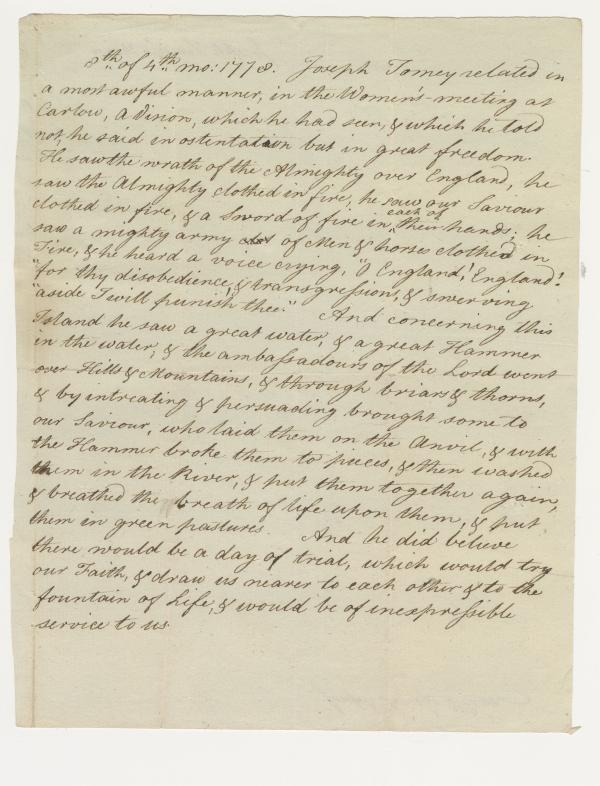 8th of 4th mo: 1778. Joseph Tomey related in
a most awful manner, in the Women's-meeting at
Carlow, a Vision, which he had seen, & which he told
not, he said in ostentation but in great freedom.
He saw the wrath of the Almighty over England, he
saw the Almighty clothed in fire, he saw our Saviour
clothed in fire, & a Sword of fire in each of their hands; he
saw a mighty army of Men & horses clothed in
Fire, & he heard a voice crying, "O England! England!
"for thy disobedience, & transgressions, & swerving
"aside I will punish thee." And concerning this
Island he saw a great water, & a great Hammer
in the water, & the ambassadours of the Lord went
over Hills & Mountains, & through briars & thorns,
& by intreating & persuading brought some to
our Saviour, who laid them on the Anvil, & with
the Hammer broke them to pieces, & then washed
them in the River, & put them together again,
& breathed the breath of life upon them, & put
them in green pastures. And he did believe
there would be a day of trial, which would try
our Faith, & draw us nearer to each other & to the
fountain of Life, & would be of inexpressible
service to us